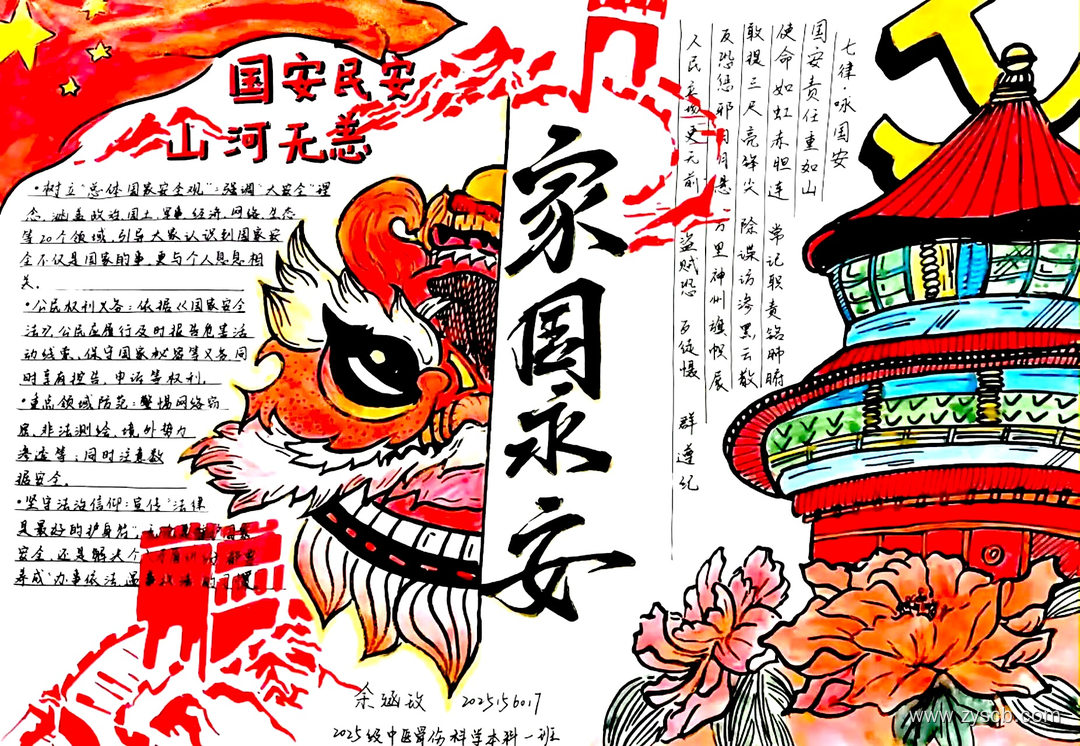 国安民安
山河无恙
•树立“总体国家安全观”:强调“大安全”理
念,涵盖政治,国土,军事,经济,网络,生态
等20个领域,引导大家认识到国家安
全不仅是国家的事,更与个人息息相
关.
•公民权利义务:依据《国家安全
法》,公民应履行及时报告危害活
动线索、保守国家秘密等义务,同
时享有控告、申诉等权利.
•重点领域防范:警惕网络窃
密、非法测绘、境外势力
渗透等;同时注意数
据安全.
•坚守法治信仰:宣传“法律
是最好的护身符”,
安全,还是解决个
养成“办事依法
家国永安
七律·咏国安
国安责任重如山
使命如虹赤胆连 常记职责铭肺腑
敢提三尺亮锋尖 除谍访渗黑云散
反恐惩邪日月悬 万里神州旗帜展
人民立场更元前 盗贼恐 百徒慑 群遵纪
余 2025156017
2025级中医骨伤科学本科一班
www.zyscb.com